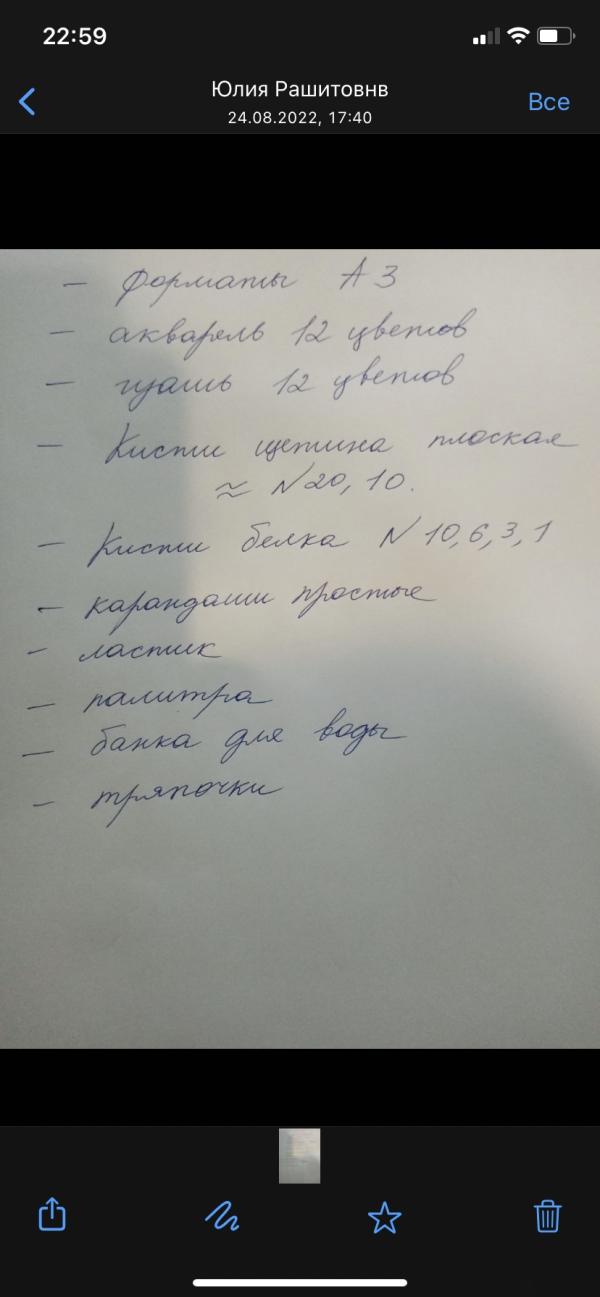 22:59
Юлия Рашитовнв
24.08.2022, 17:40
Все
- форматы А3
- акварель 12 цветов
- гуашь 12 цветов
- Кисти щетина плоская
≈ N20, 10.
- Кисти белка N 10, 6, 3, 1
- карандаши простые
- ластик
- палитра
- банка для воды
- тряпочки